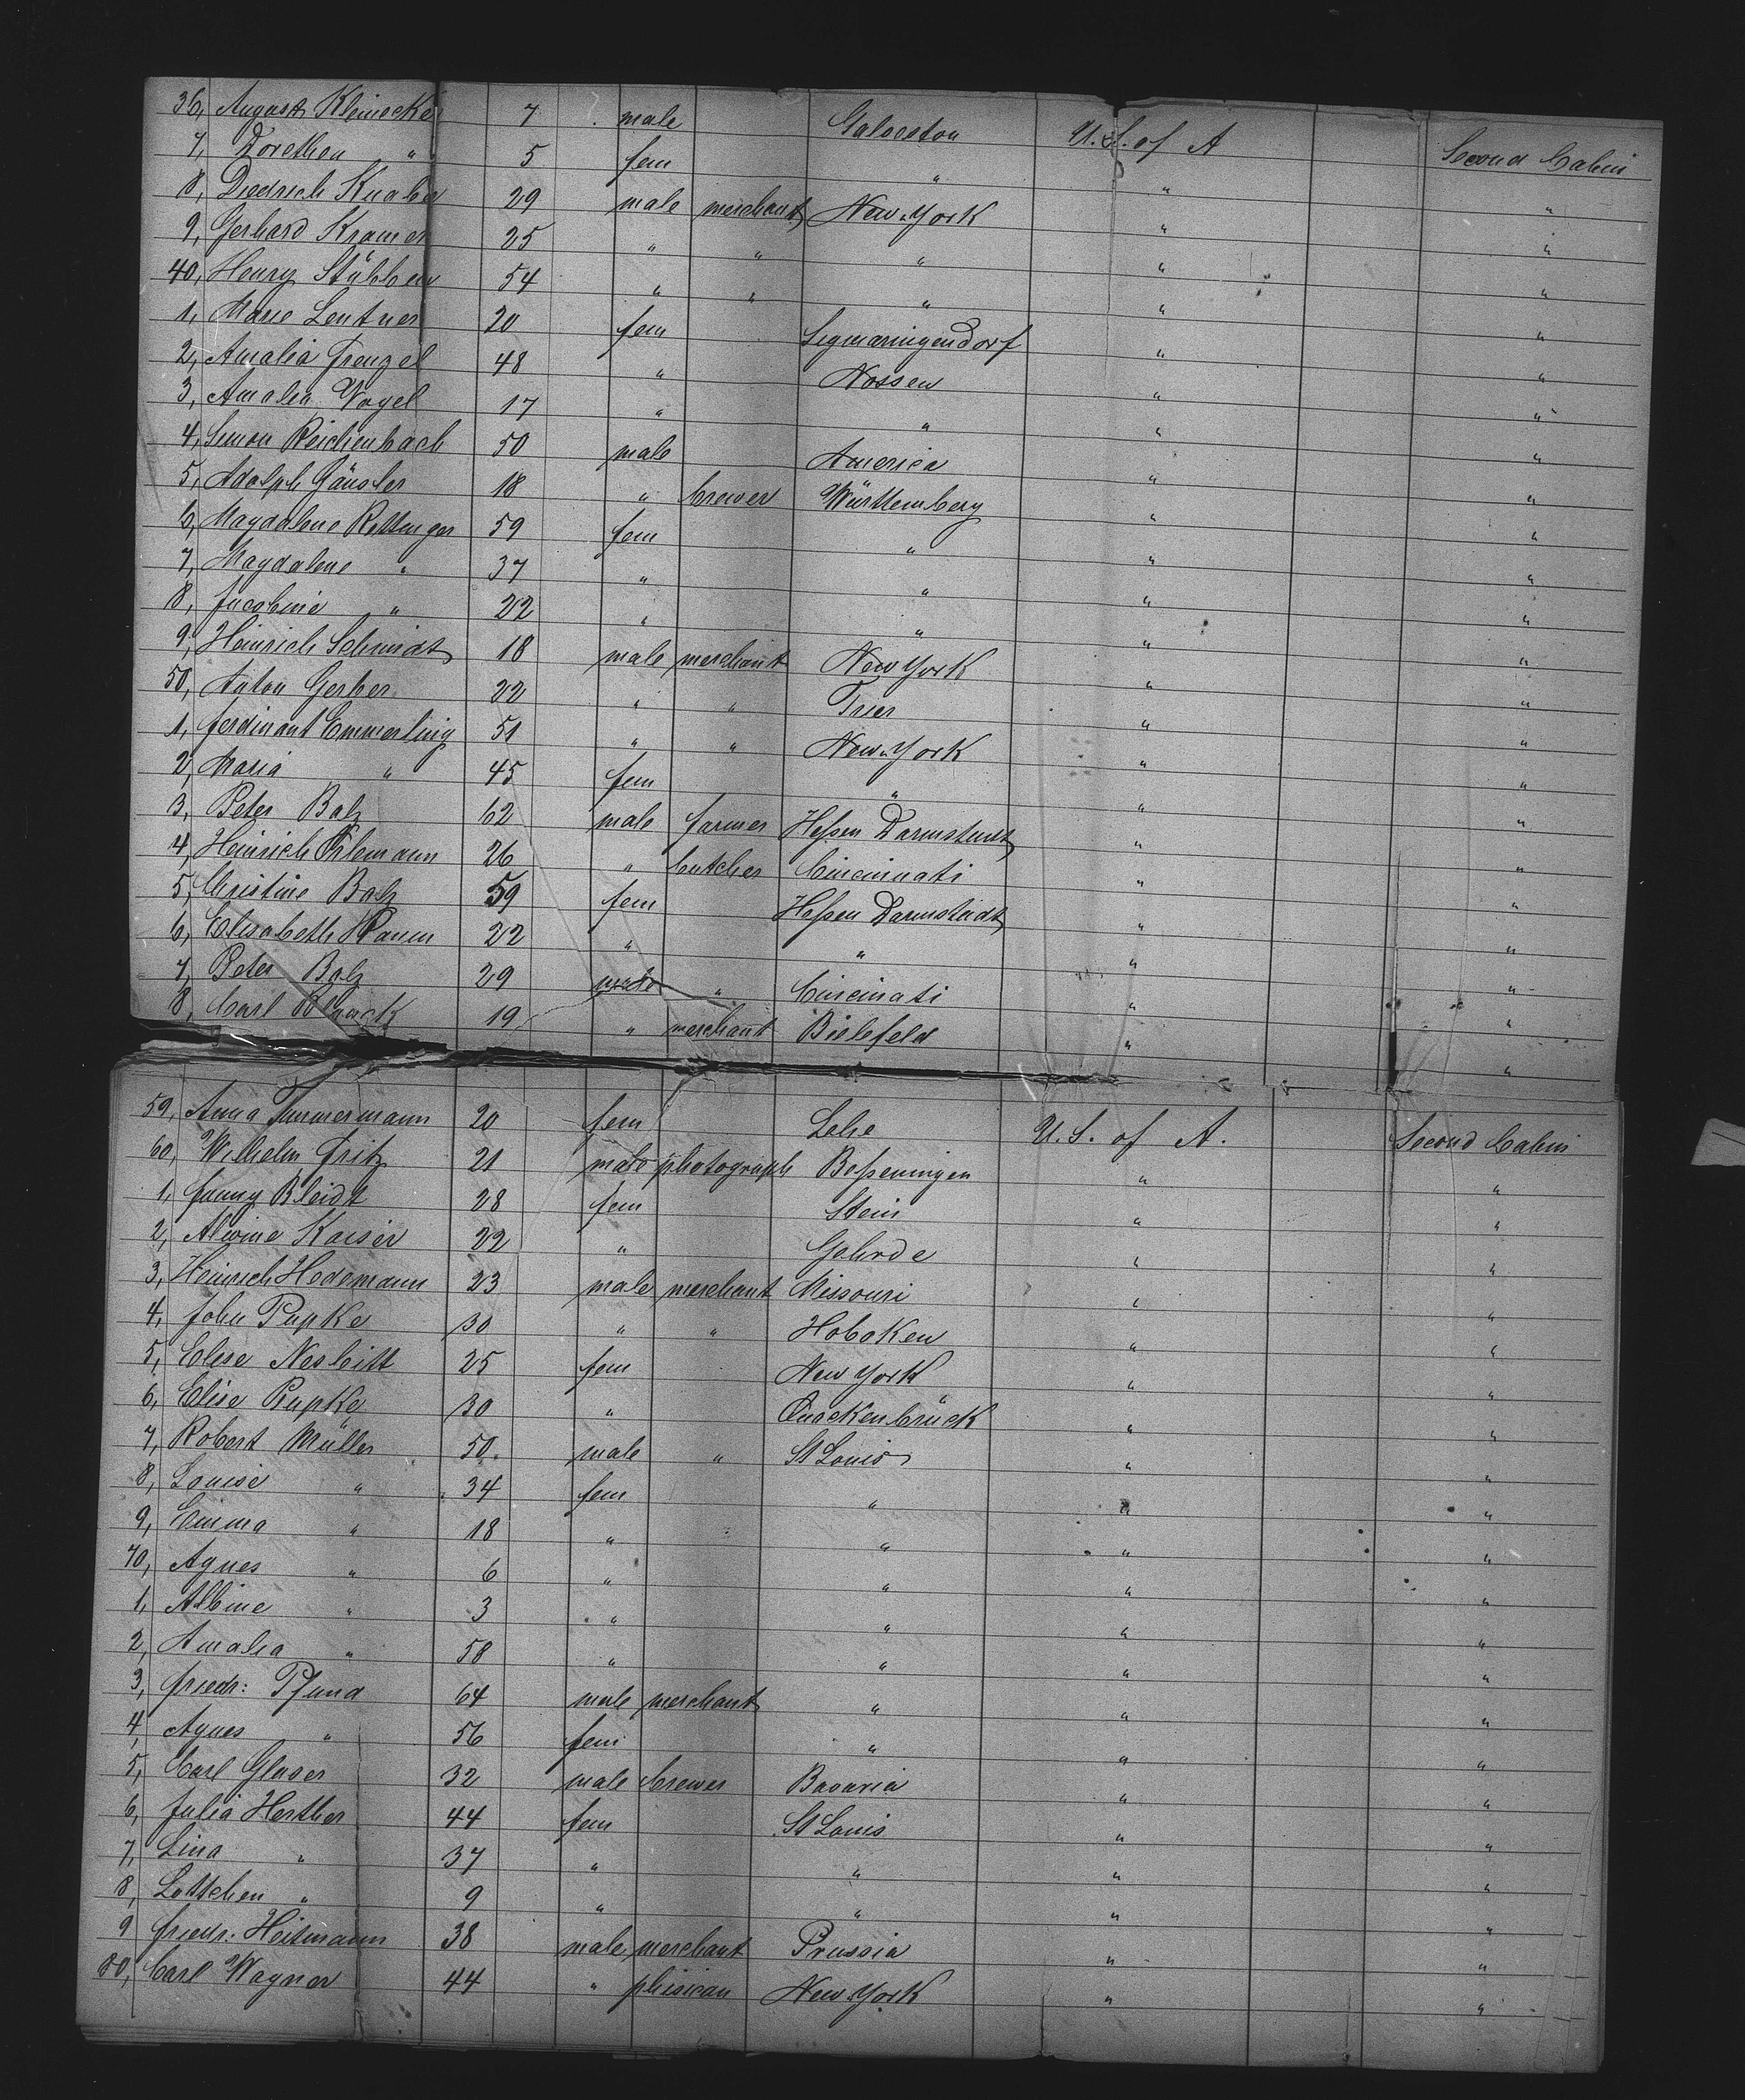 36, August Kleinecke 7 male Galveston U.S. of A Second Cabin
7, Dorethea " 5 fem " " "
8, Diedrich Knabe 29 male merchant New York " "
9, Gerhard Kramer 25 " " " " "
40, Henry Stübben 54 " " " " "
1, Marie Lentner 20 fem Sigmaringendorf " "
2, Amalia Frenzel 48 " Nossen " "
3, Amalia Vogel 17 " " " "
4, Simon Reichenbach 50 male America " "
5, Adolph Gänsler 18 " brewer Württemberg " "
6, Magdalene Rettinger 59 fem " " "
7, Magdalene " 37 " " " "
8, Jacobine " 22 " " " "
9, Heinrich Schmidt 18 male merchant New York " "
50, Anton Gerber 22 " " Trier " "
1, Ferdinant Emmerling 51 " " New York " "
2, Maria " 45 fem " " "
3, Peter Balz 62 male farmer Heßen Darmstadt " "
4, Heinrich 26 " butcher Cincinnati " "
5, Christine Balz 59 fem Heßen Darmstadt " "
6, Elisabeth 22 " " " "
7, Peter Balz 29 male " Cincinati " "
8, Carl 19 " merchant Bielefeld " "
59, Anna Timmermann 20 fem Lehe U.S. of A. Second Cabin
60, Wilhelm Fritz 21 male photograph Beßeningen " "
1, Fanny Bleidt 28 fem Stein " "
2, Alwine Kaiser 22 " Gehrde " "
3, Heinrich Hedemann 23 male merchant Missouri " "
4, John Pupke 30 " " Hoboken " "
5, Elese Nesbitt 25 fem New York " "
6, Elise Pupke 30 " Quackenbrück " "
7, Robert Müller 50 male " St Louis " "
8, Louise " 34 fem " " "
9, Emma " 18 " " " "
70, Agnes " 6 " " " "
1, Albine " 3 " " " "
2, Amalia " 58 " " " "
3, Friedr: Pfund 64 male merchant " " "
4, Agnes " 56 fem " " "
5, Carl Glaser 32 male brewer Bavaria " "
6, Julia Herther 44 fem St Louis " "
7, Lina " 37 " " " "
8, Lottchen " 9 " " " "
9 Friedr: Heitmann 38 male merchant Prussia " "
80, Carl Wagner 44 " phisican New York " "